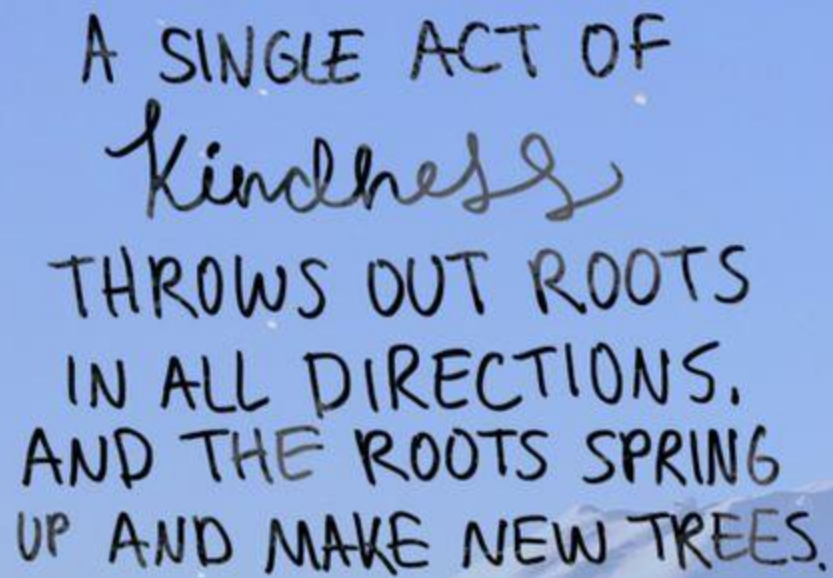 A SINGLE ACT OF
Kindness
THROWS OUT ROOTS
IN ALL DIRECTIONS.
AND THE ROOTS SPRING
UP AND MAKE NEW TREES.